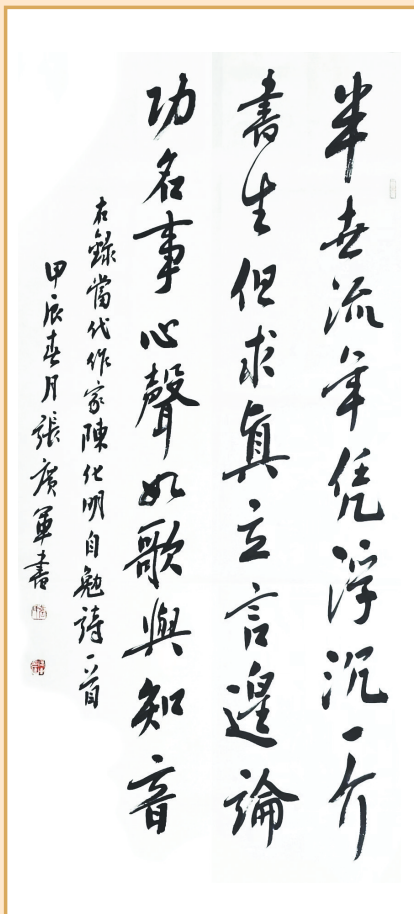 半世流年凭浮沉一介
書生但求真立言遑論
功名事心聲如歌與知音
右錄當代作家陳化明自勉詩一首
甲辰春月張廣軍書